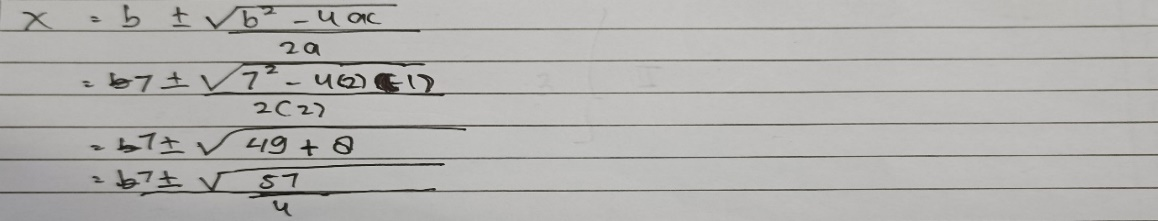 x = b ± √b² - 4ac
2a
= b7 ± √7² - 4(2)(-1)
2(2)
= b7 ± √49 + 8
= b7 ± √57
4